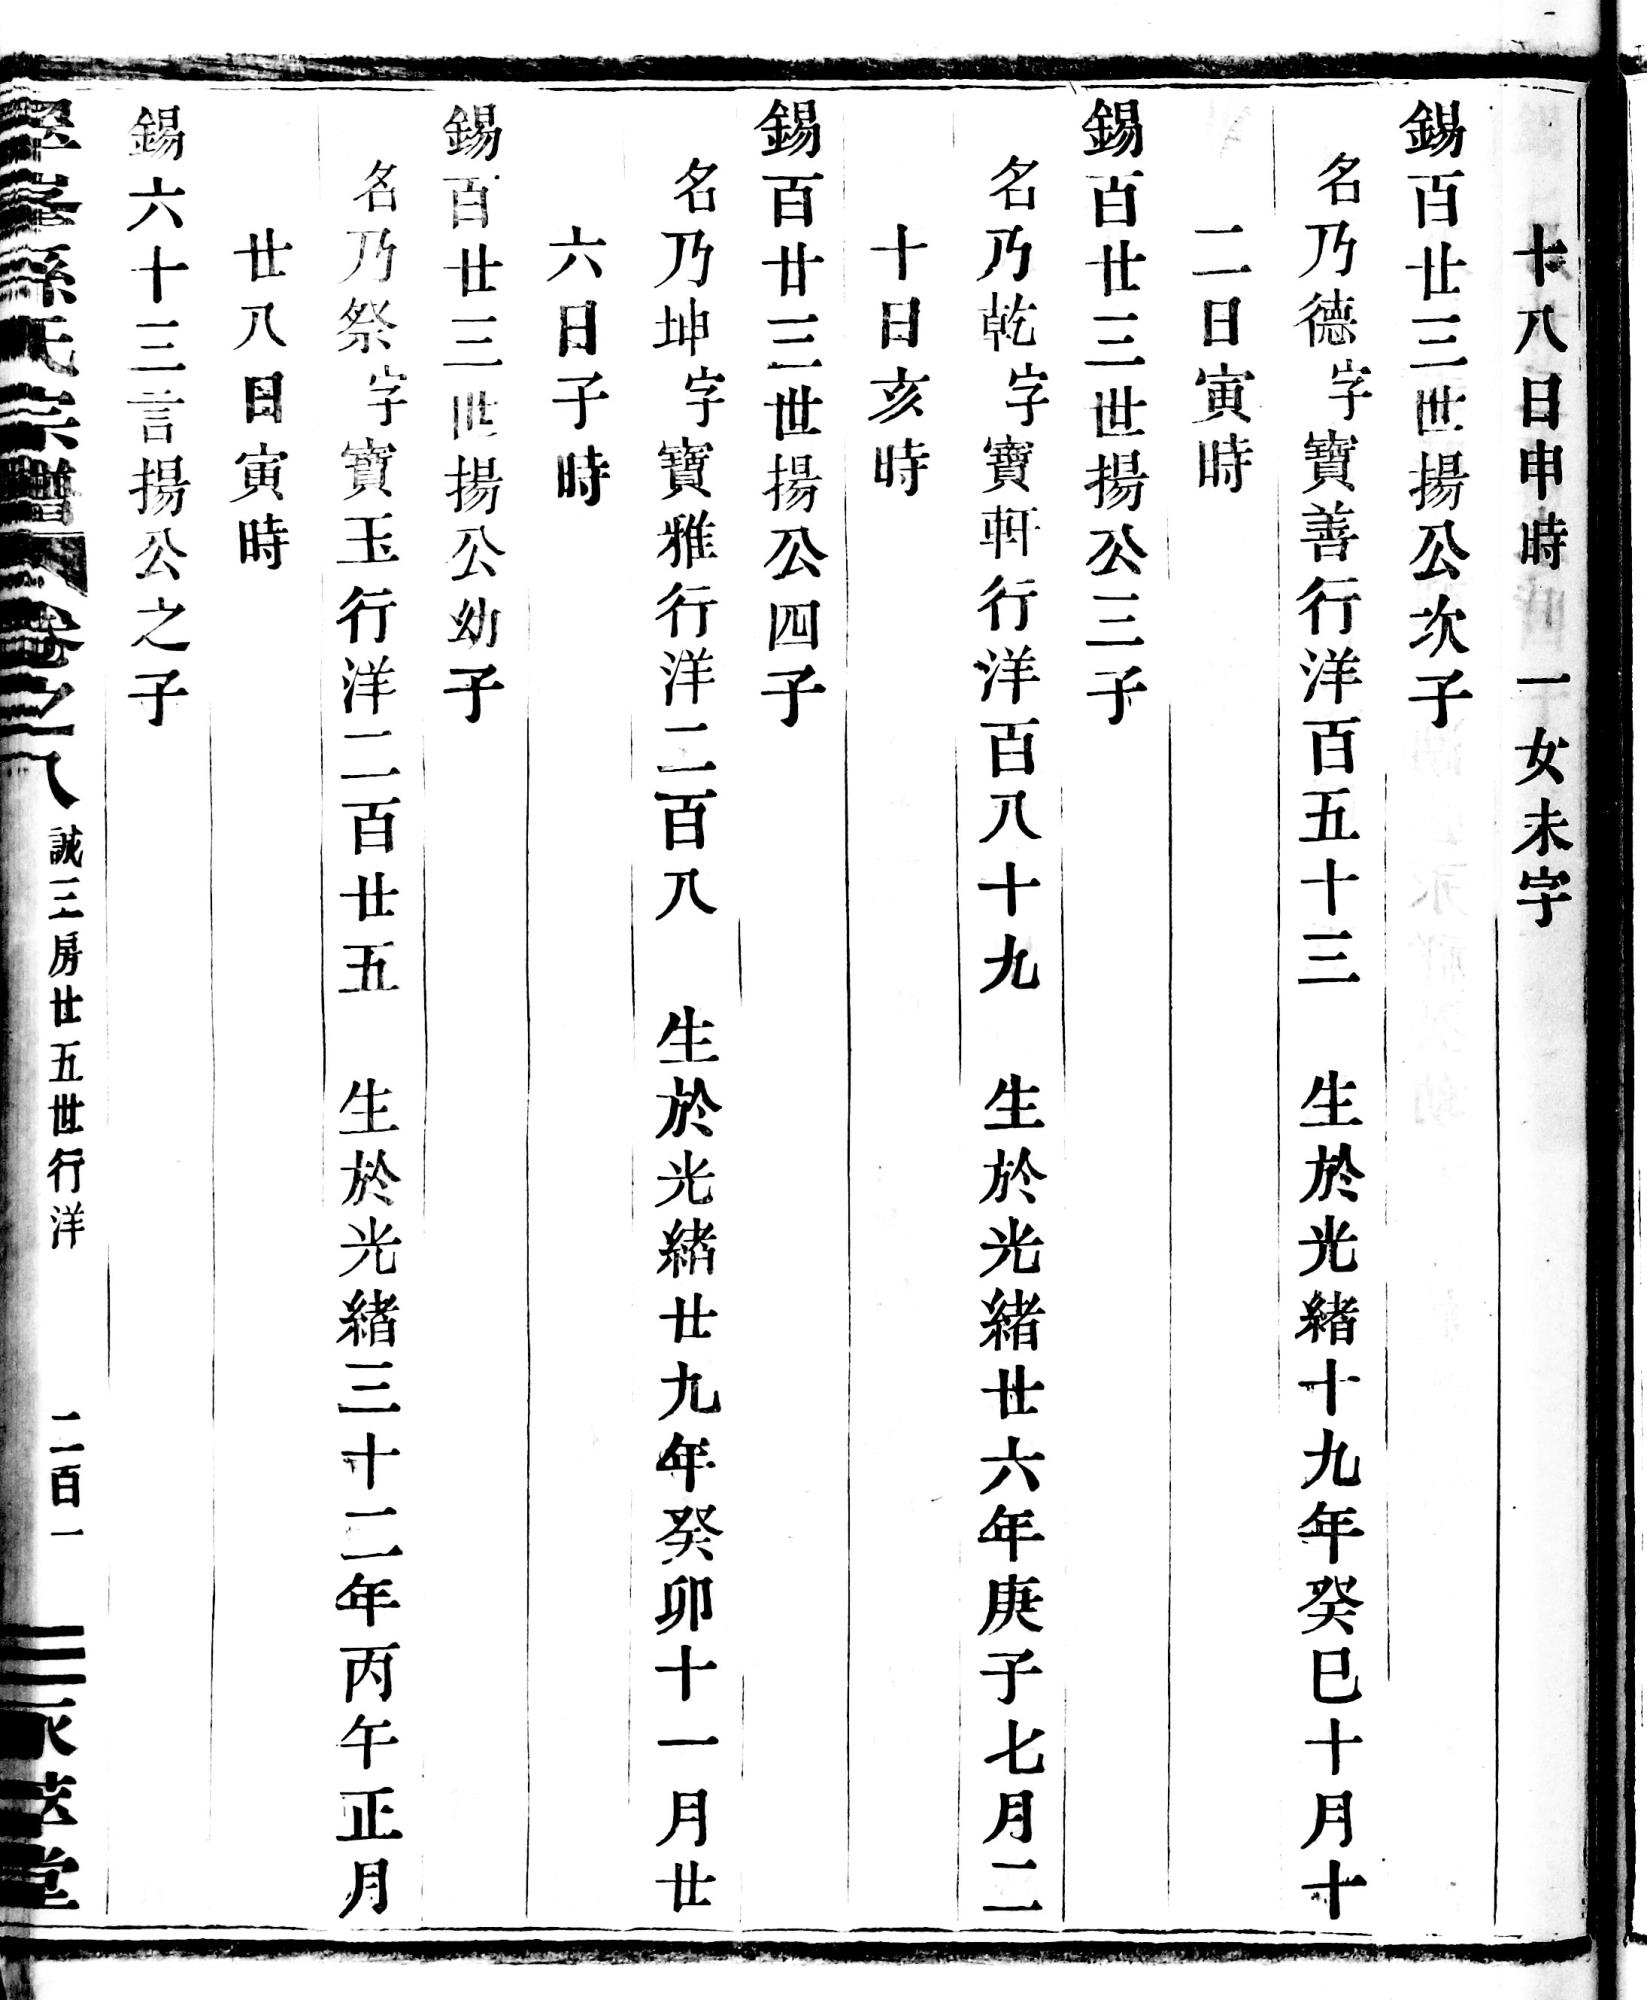 十八日申時　一女未字
錫百廿三世揚公次子
名乃德字寶善行洋百五十三　生於光緒十九年癸巳十月十
二日寅時
錫百廿三世揚公三子
名乃乾字寶軒行洋百八十九　生於光緒廿六年庚子七月二
十日亥時
錫百廿三世揚公四子
名乃坤字寶雅行洋二百八　生於光緒廿九年癸卯十一月廿
六日子時
錫百廿三世揚公幼子
名乃祭字寶玉行洋二百廿五　生於光緒三十二年丙午正月
廿八日寅時
錫六十三言揚公之子
孫氏宗譜 卷之八 誠三房廿五世行洋 二百一 萃堂